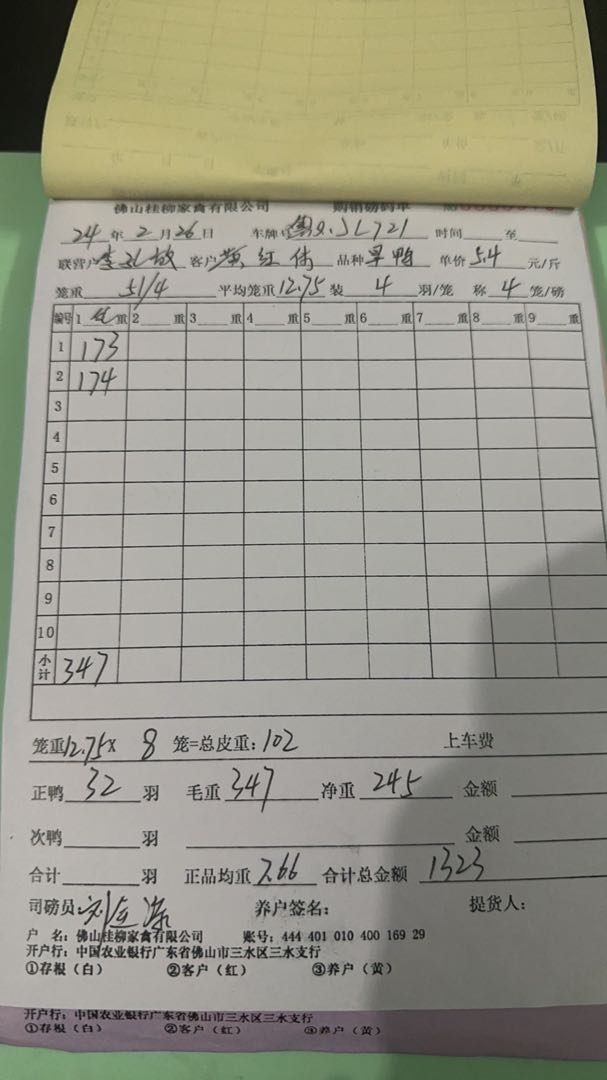 佛山桂柳家禽有限公司 购销磅码单
24年2月26日 车牌: L721 时间 至
联营户 客户 黄红伟 品种 旱鸭 单价 5.4 元/斤
笼重 51/4 平均笼重 12.75 装 4 羽/笼 称 4 笼/磅
编号 1 毛 重 2 重 3 重 4 重 5 重 6 重 7 重 8 重 9 重
1 173
2 174
3
4
5
6
7
8
9
10
小计 347
笼重12.75× 8 笼=总皮重: 102 上车费
正鸭 32 羽 毛重 347 净重 245 金额
次鸭 羽 金额
合计 羽 正品均重 7.66 合计总金额 1323
司磅员: 养户签名: 提货人:
户 名: 佛山桂柳家禽有限公司 账号: 444 401 010 400 169 29
开户行: 中国农业银行广东省佛山市三水区三水支行
①存根（白） ②客户（红） ③养户（黄）
开户行: 中国农业银行广东省佛山市三水区三水支行
①存根（白） ②客户（红） ③养户（黄）